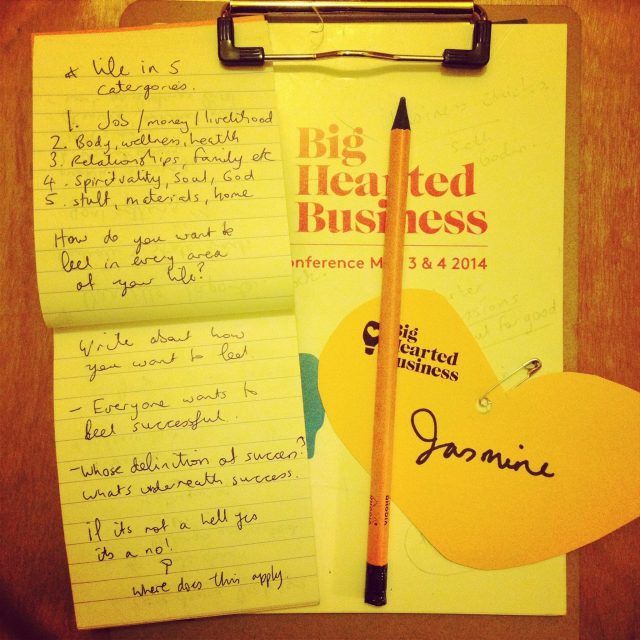 * life in 5
catergories.
1. Job / money / livelihood
2. Body, wellness, health
3. Relationships, family etc
4. Spirituality, Soul, God
5. Stuff, materials, home
How do you want to
feel in every area
of your life?
Write about how
you want to feel
- Everyone wants to
feel successful.
- Whose definition of success?
whats underneath success.
if its not a hell yes
its a no!
where does this apply.
Big
Hearted
Business
onference M 3 & 4 2014
Big
Hearted
Business
Jasmine